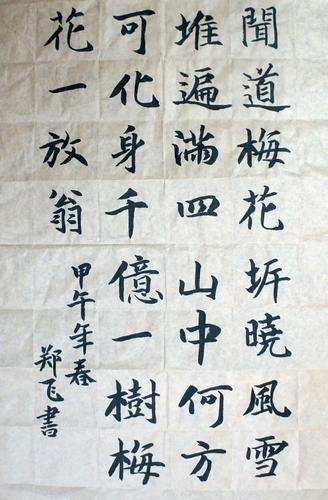 聞道梅花坼曉風雪
堆遍滿四山中何方
可化身千億一樹梅
花一放翁
甲午年春
郑飞書